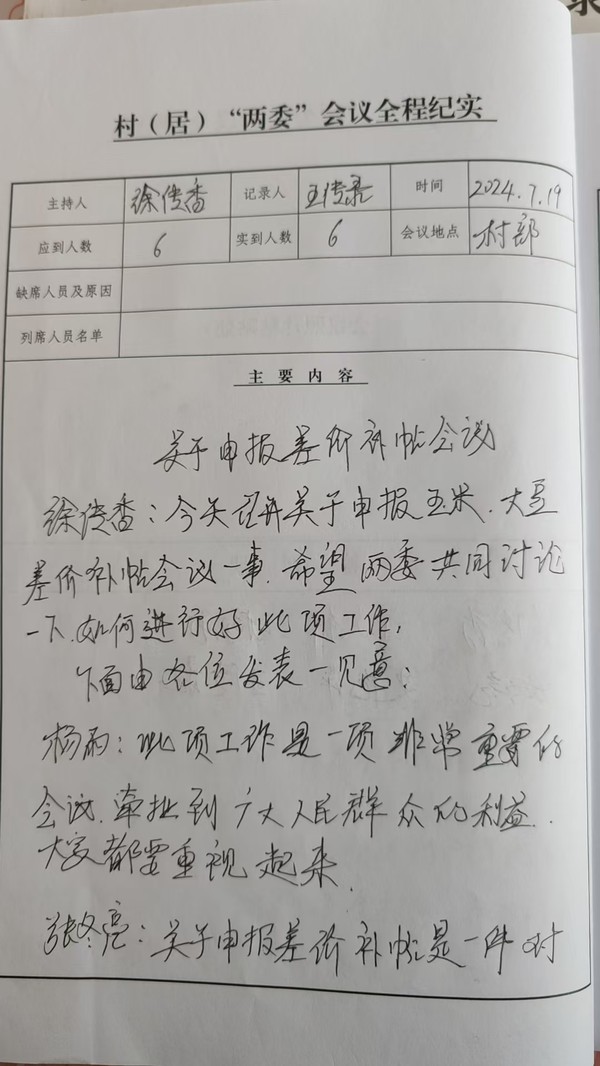 村（居）“两委”会议全程纪实
主持人 徐传香 记录人 王传录 时间 2024.7.19
应到人数 6 实到人数 6 会议地点 村部
缺席人员及原因
列席人员名单
主要内容
关于申报差价补帖会议
徐传香：今天召开关于申报玉米、大豆
差价补帖会议一事，希望两委共同讨论
一下，如何进行好此项工作，
下面由各位发表一见意：
杨雨：此项工作是一项非常重要的
会议，牵扯到广大人民群众的利益，
大家都要重视起来。
张冬亮：关于申报差价补帖是一件对